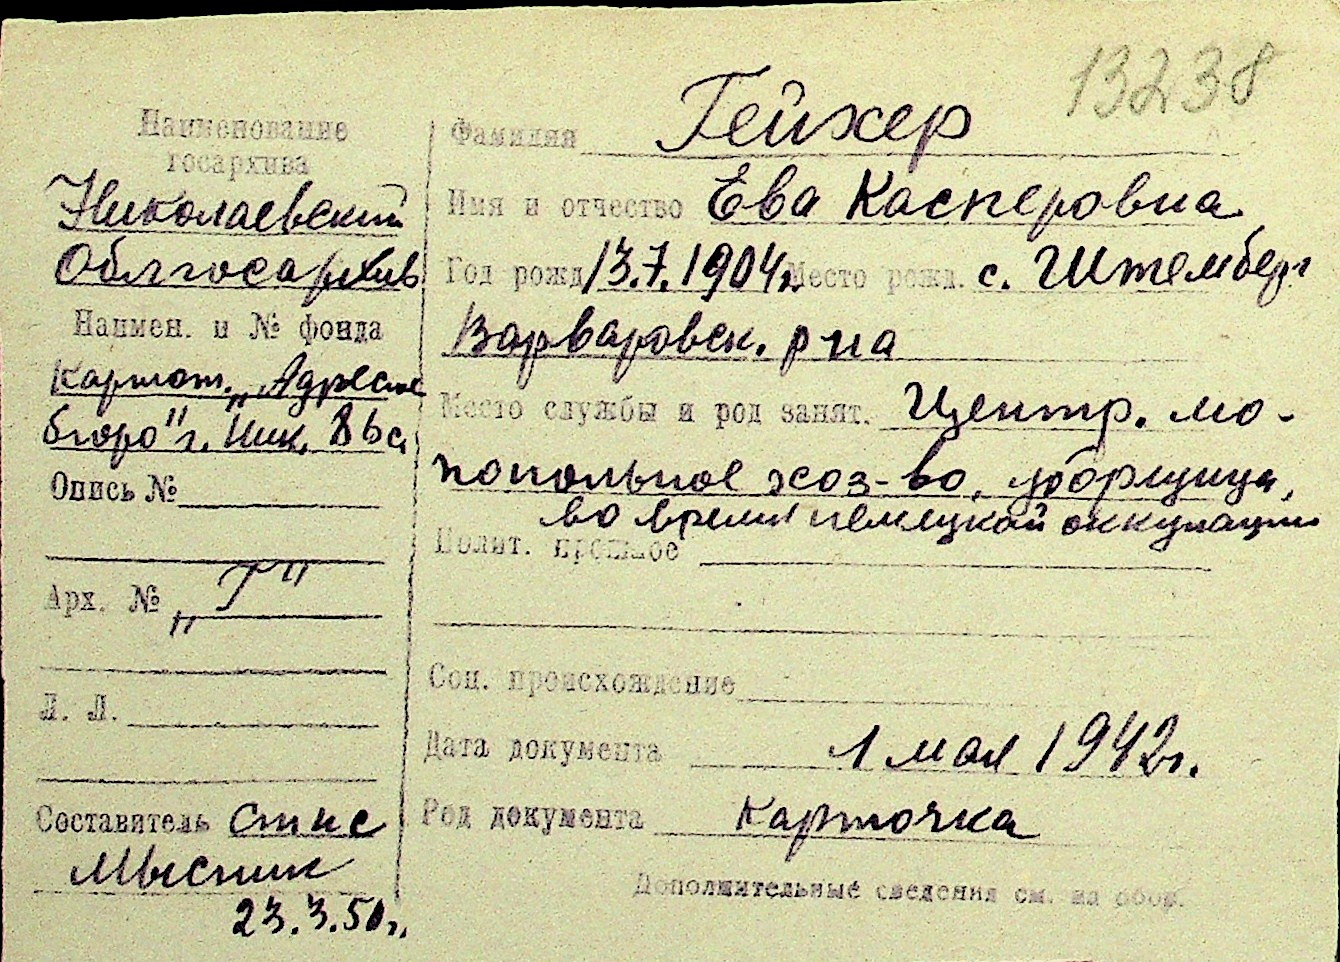 13238
Наименование
госархива
Николаевский
Облгосархив
Наимен. и № фонда
Картот. „Адресное
бюро" г. Ник.
Опись №
Арх. № „Г"
Л. Л.
Составитель
23.3.50г.
Фамилия Гейхер
Имя и отчество Ева Касперовна
Год рожд 13.7.1904г. Место рожд. с. Штемберг
Варваровск. р-на
Место службы и род занят. Центр. мо-
нопольное хоз-во, уборщица,
во время немецкой оккупации
Полит. прошлое
Соц. происхождение
Дата документа 1 мая 1942г.
Род документа Карточка
Дополнительные сведения см. на обор.